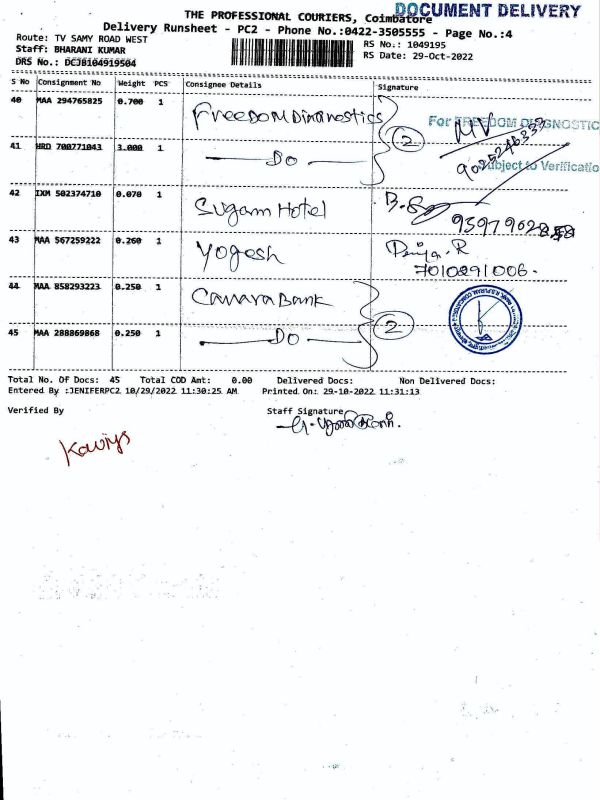 DOCUMENT DELIVERY
THE PROFESSIONAL COURIERS, Coimbatore
Delivery Runsheet - PC2 - Phone No.:0422-3505555 - Page No.:4
Route: TV SAMY ROAD WEST
RS No.: 1049195
Staff: BHARANI KUMAR
RS Date: 29-Oct-2022
DRS No.: DCJB104919504
S No Consignment No Weight PCS Consignee Details Signature
40 MAA 294765825 0.700 1 Freedom Dinanostics
For FREEDOM DIGNOSTIC
MV
41 HRD 700771043 3.000 1 Do 2
9025246333
Subject to Verificatio
42 IXM 502374710 0.070 1 Sugam Hotel
43 MAA 567259222 0.260 1 Yogesh Priya. R
7010291006.
44 MAA 858293223 0.250 1 Canara Bank
45 MAA 288869868 0.250 1 Do 2
Total No. Of Docs: 45 Total COD Amt: 0.00 Delivered Docs: Non Delivered Docs:
Entered By :JENIFERPC2 10/29/2022 11:30:25 AM Printed On: 29-10-2022 11:31:13
Verified By Staff Signature
Kaviys